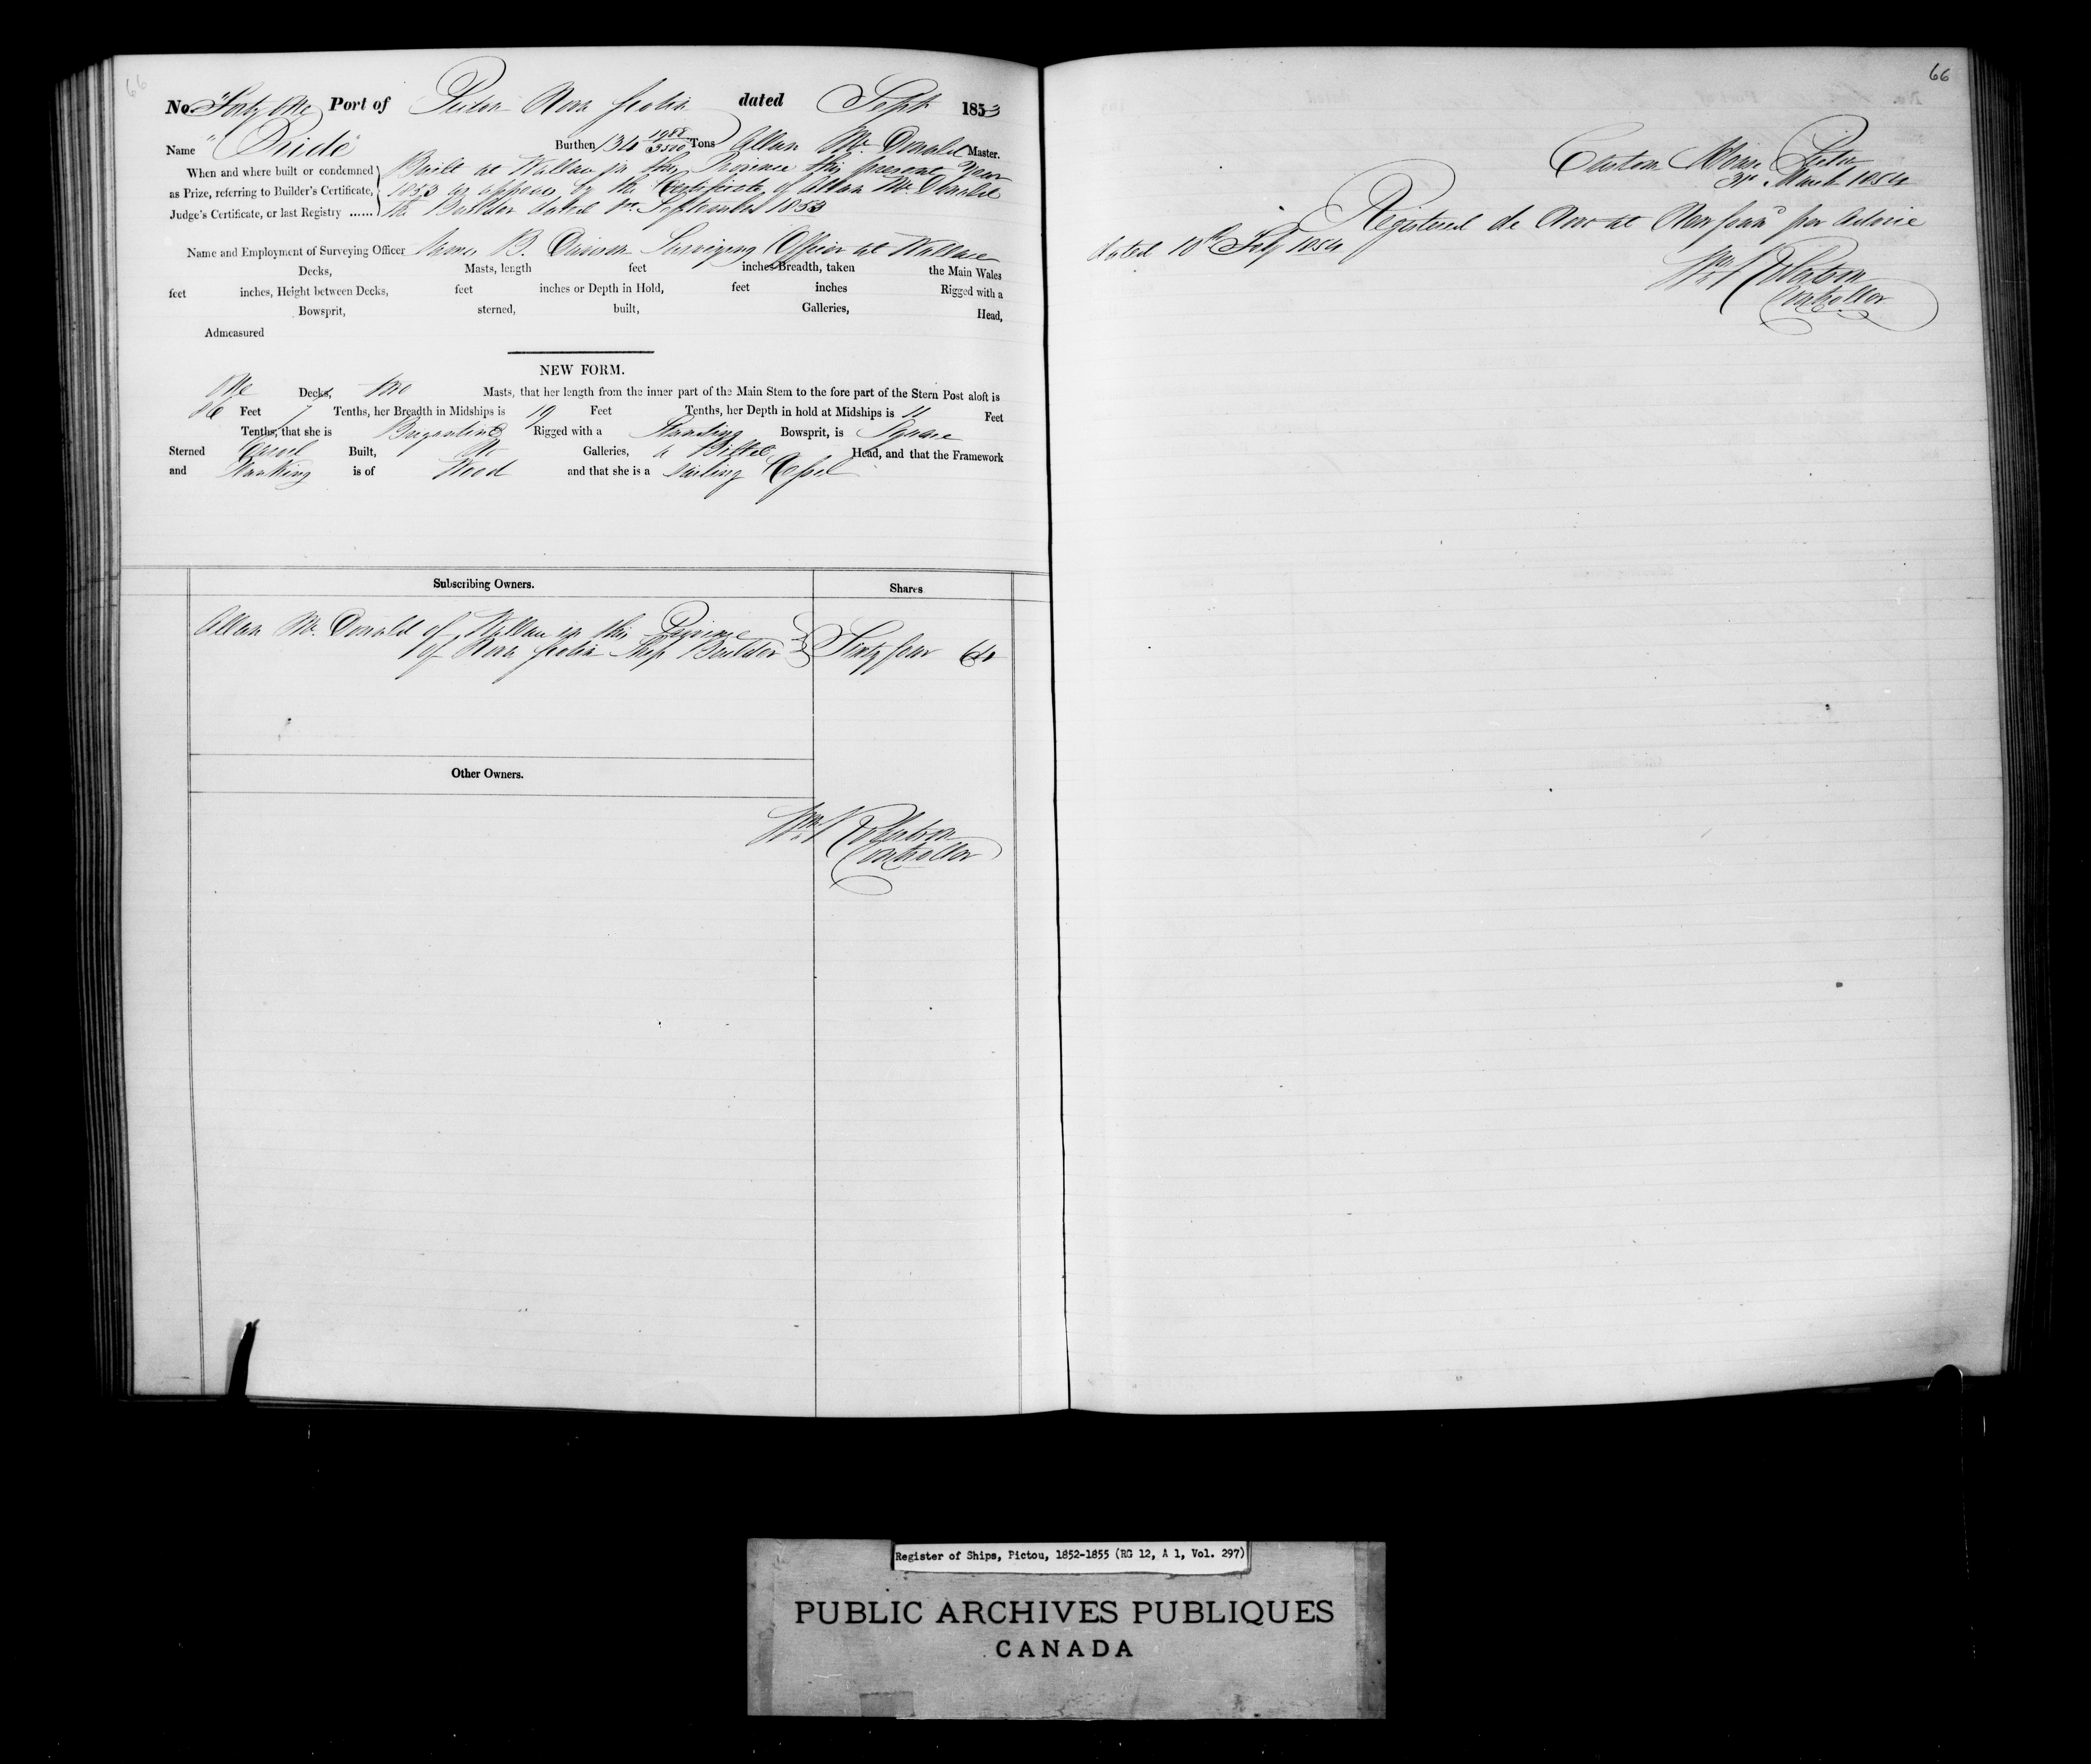 66
No. "Forty One" Port of Pictou Nova Scotia dated Sept 1853
Name "Pride" Burthen 134 1988/3500 Tons Allan Mc Donald Master.
When and where built or condemned as Prize, referring to Builder's Certificate, Judge's Certificate, or last Registry ......
Built at Wallace in this Province this present Year
1853 as appears by the Certificate of Allan Mc Donald
the Builder dated September 1853
Name and Employment of Surveying Officer B. Surveying Officer at Wallace
Decks, Masts, length feet inches Breadth, taken the Main Wales
feet inches, Height between Decks, feet inches or Depth in Hold, feet inches Rigged with a
Bowsprit, sterned, built, Galleries, Head,
Admeasured
NEW FORM.
One Decks, Two Masts, that her length from the inner part of the Main Stem to the fore part of the Stern Post aloft is
86 Feet 7 Tenths, her Breadth in Midships is 19 Feet Tenths, her Depth in hold at Midships is 11 Feet
Tenths, that she is Brigantine Rigged with a Standing Bowsprit, is Square
Sterned Carvel Built, No Galleries, a Billet Head, and that the Framework
and Planking is of Wood and that she is a sailing Vessel
Subscribing Owners. Shares
Allan Mc. Donald of Wallace in this Province
of Nova Scotia Ship Builder Sixty four 64
Other Owners.
Wm Robertson
Controller
66
Custom House Pictou
3rd March 1854
Registered de Novo at Newfound per advice
dated 10th Feby 1854
Wm Robertson
Controller
Register of Ships, Pictou, 1852-1855 (RG 12, A 1, Vol. 297)
PUBLIC ARCHIVES PUBLIQUES
CANADA